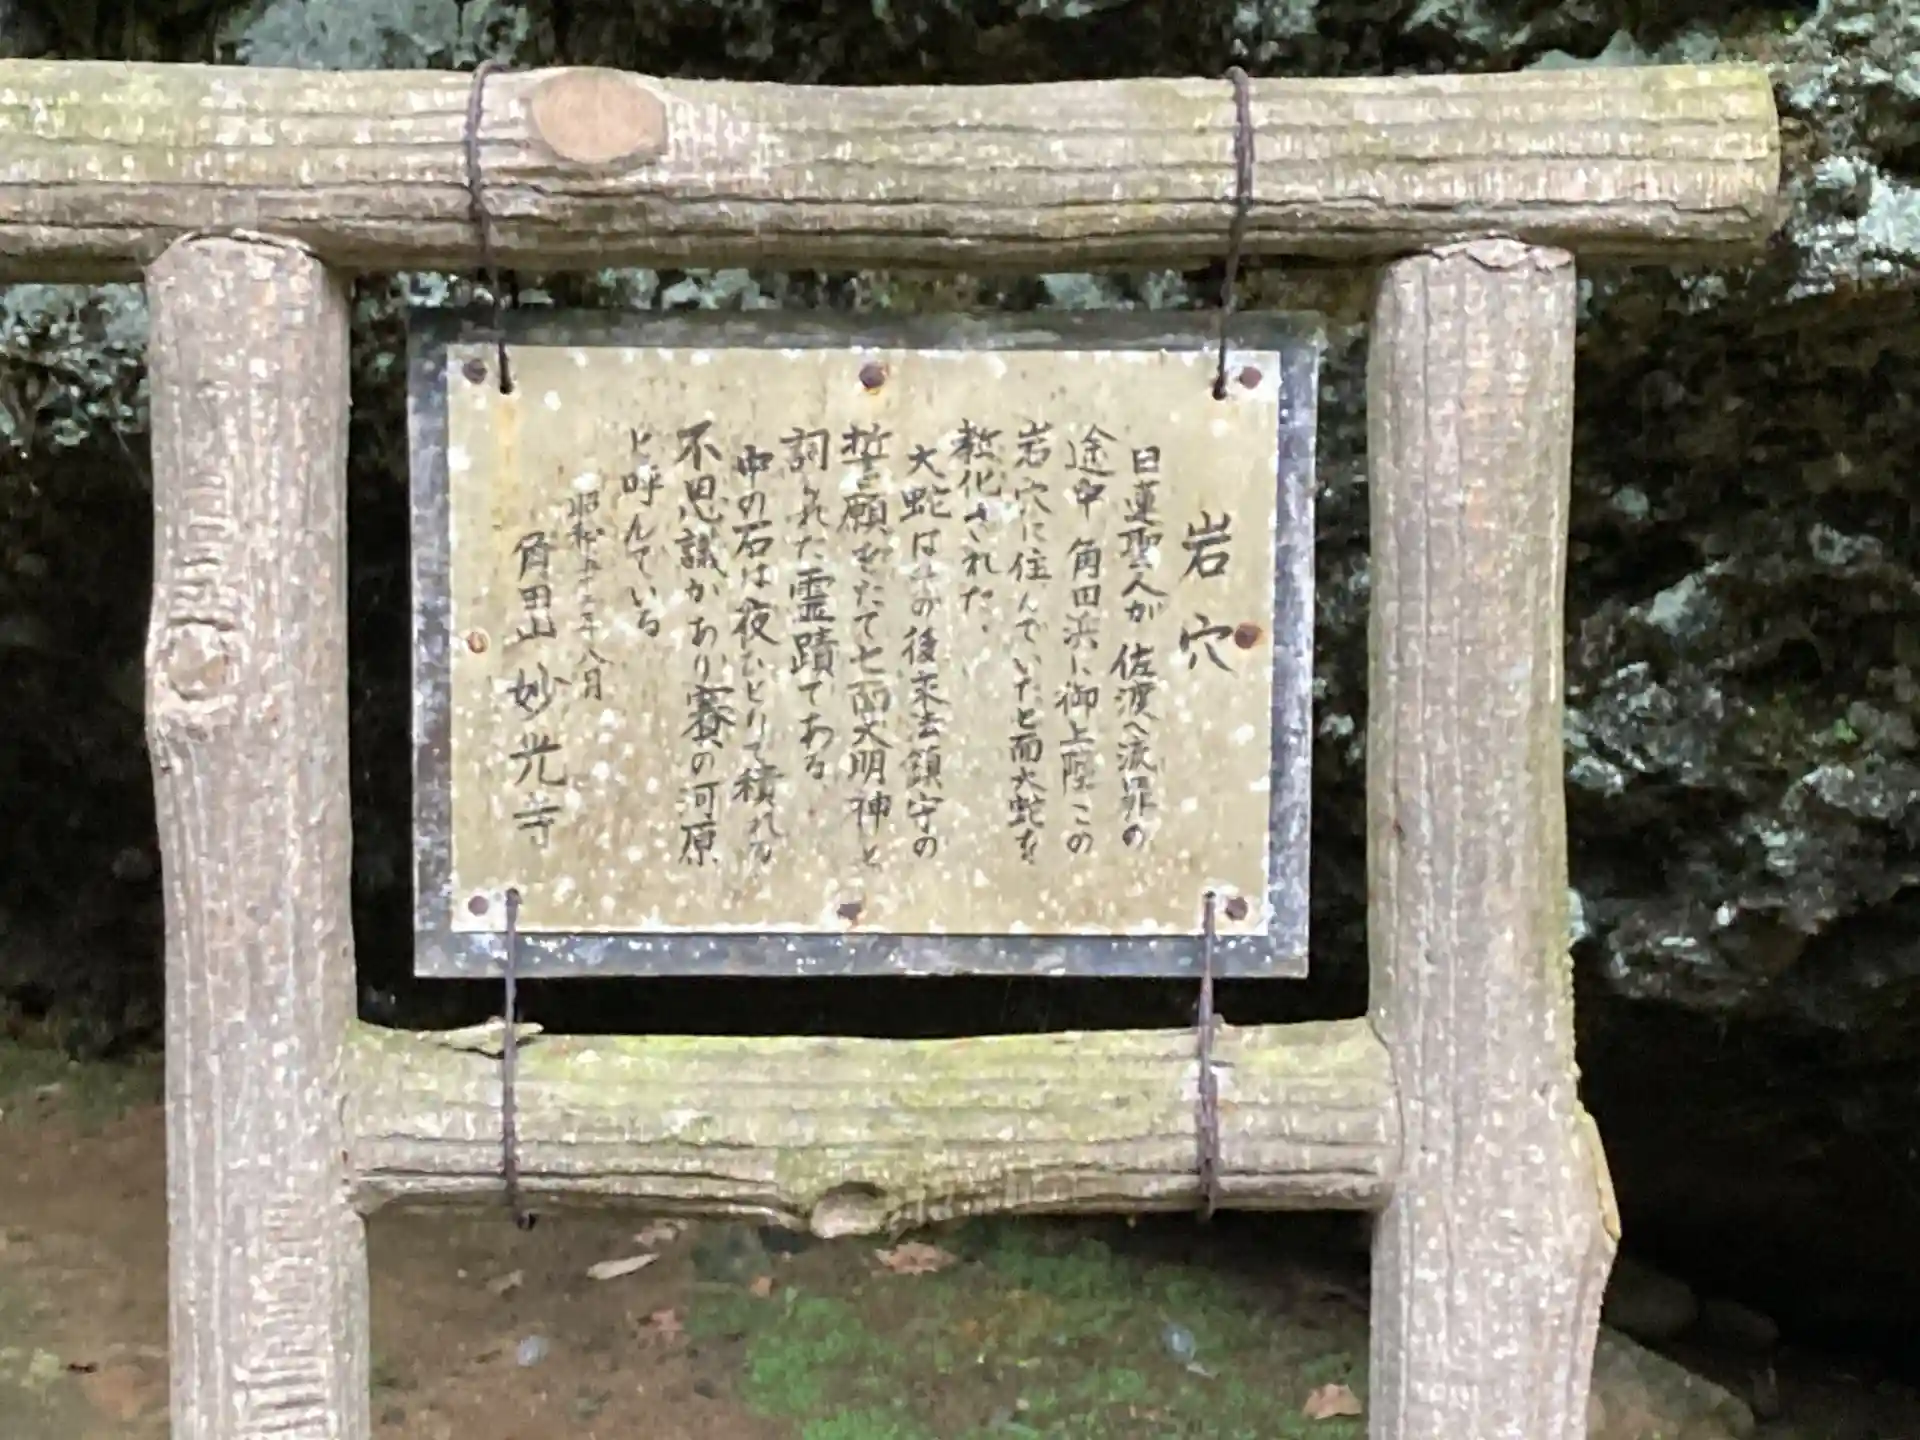 岩穴
日蓮聖人が 佐渡へ流罪の
途中 角田浜に御上陸この
岩穴に住んでいた七面大蛇を
教化された、
大蛇はその後末法鎮守の
誓願をたて七面大明神と
祠られた霊蹟である、
中の石は夜ひとりで積れる
不思議があり賽の河原
と呼んでいる
昭和五十二年八月
角田山 妙光寺